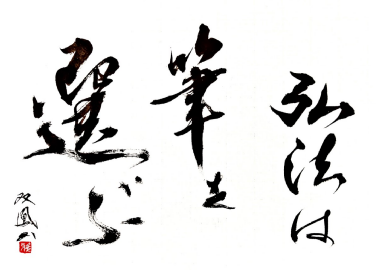 弘法は
筆を
選ぶ
双鳳